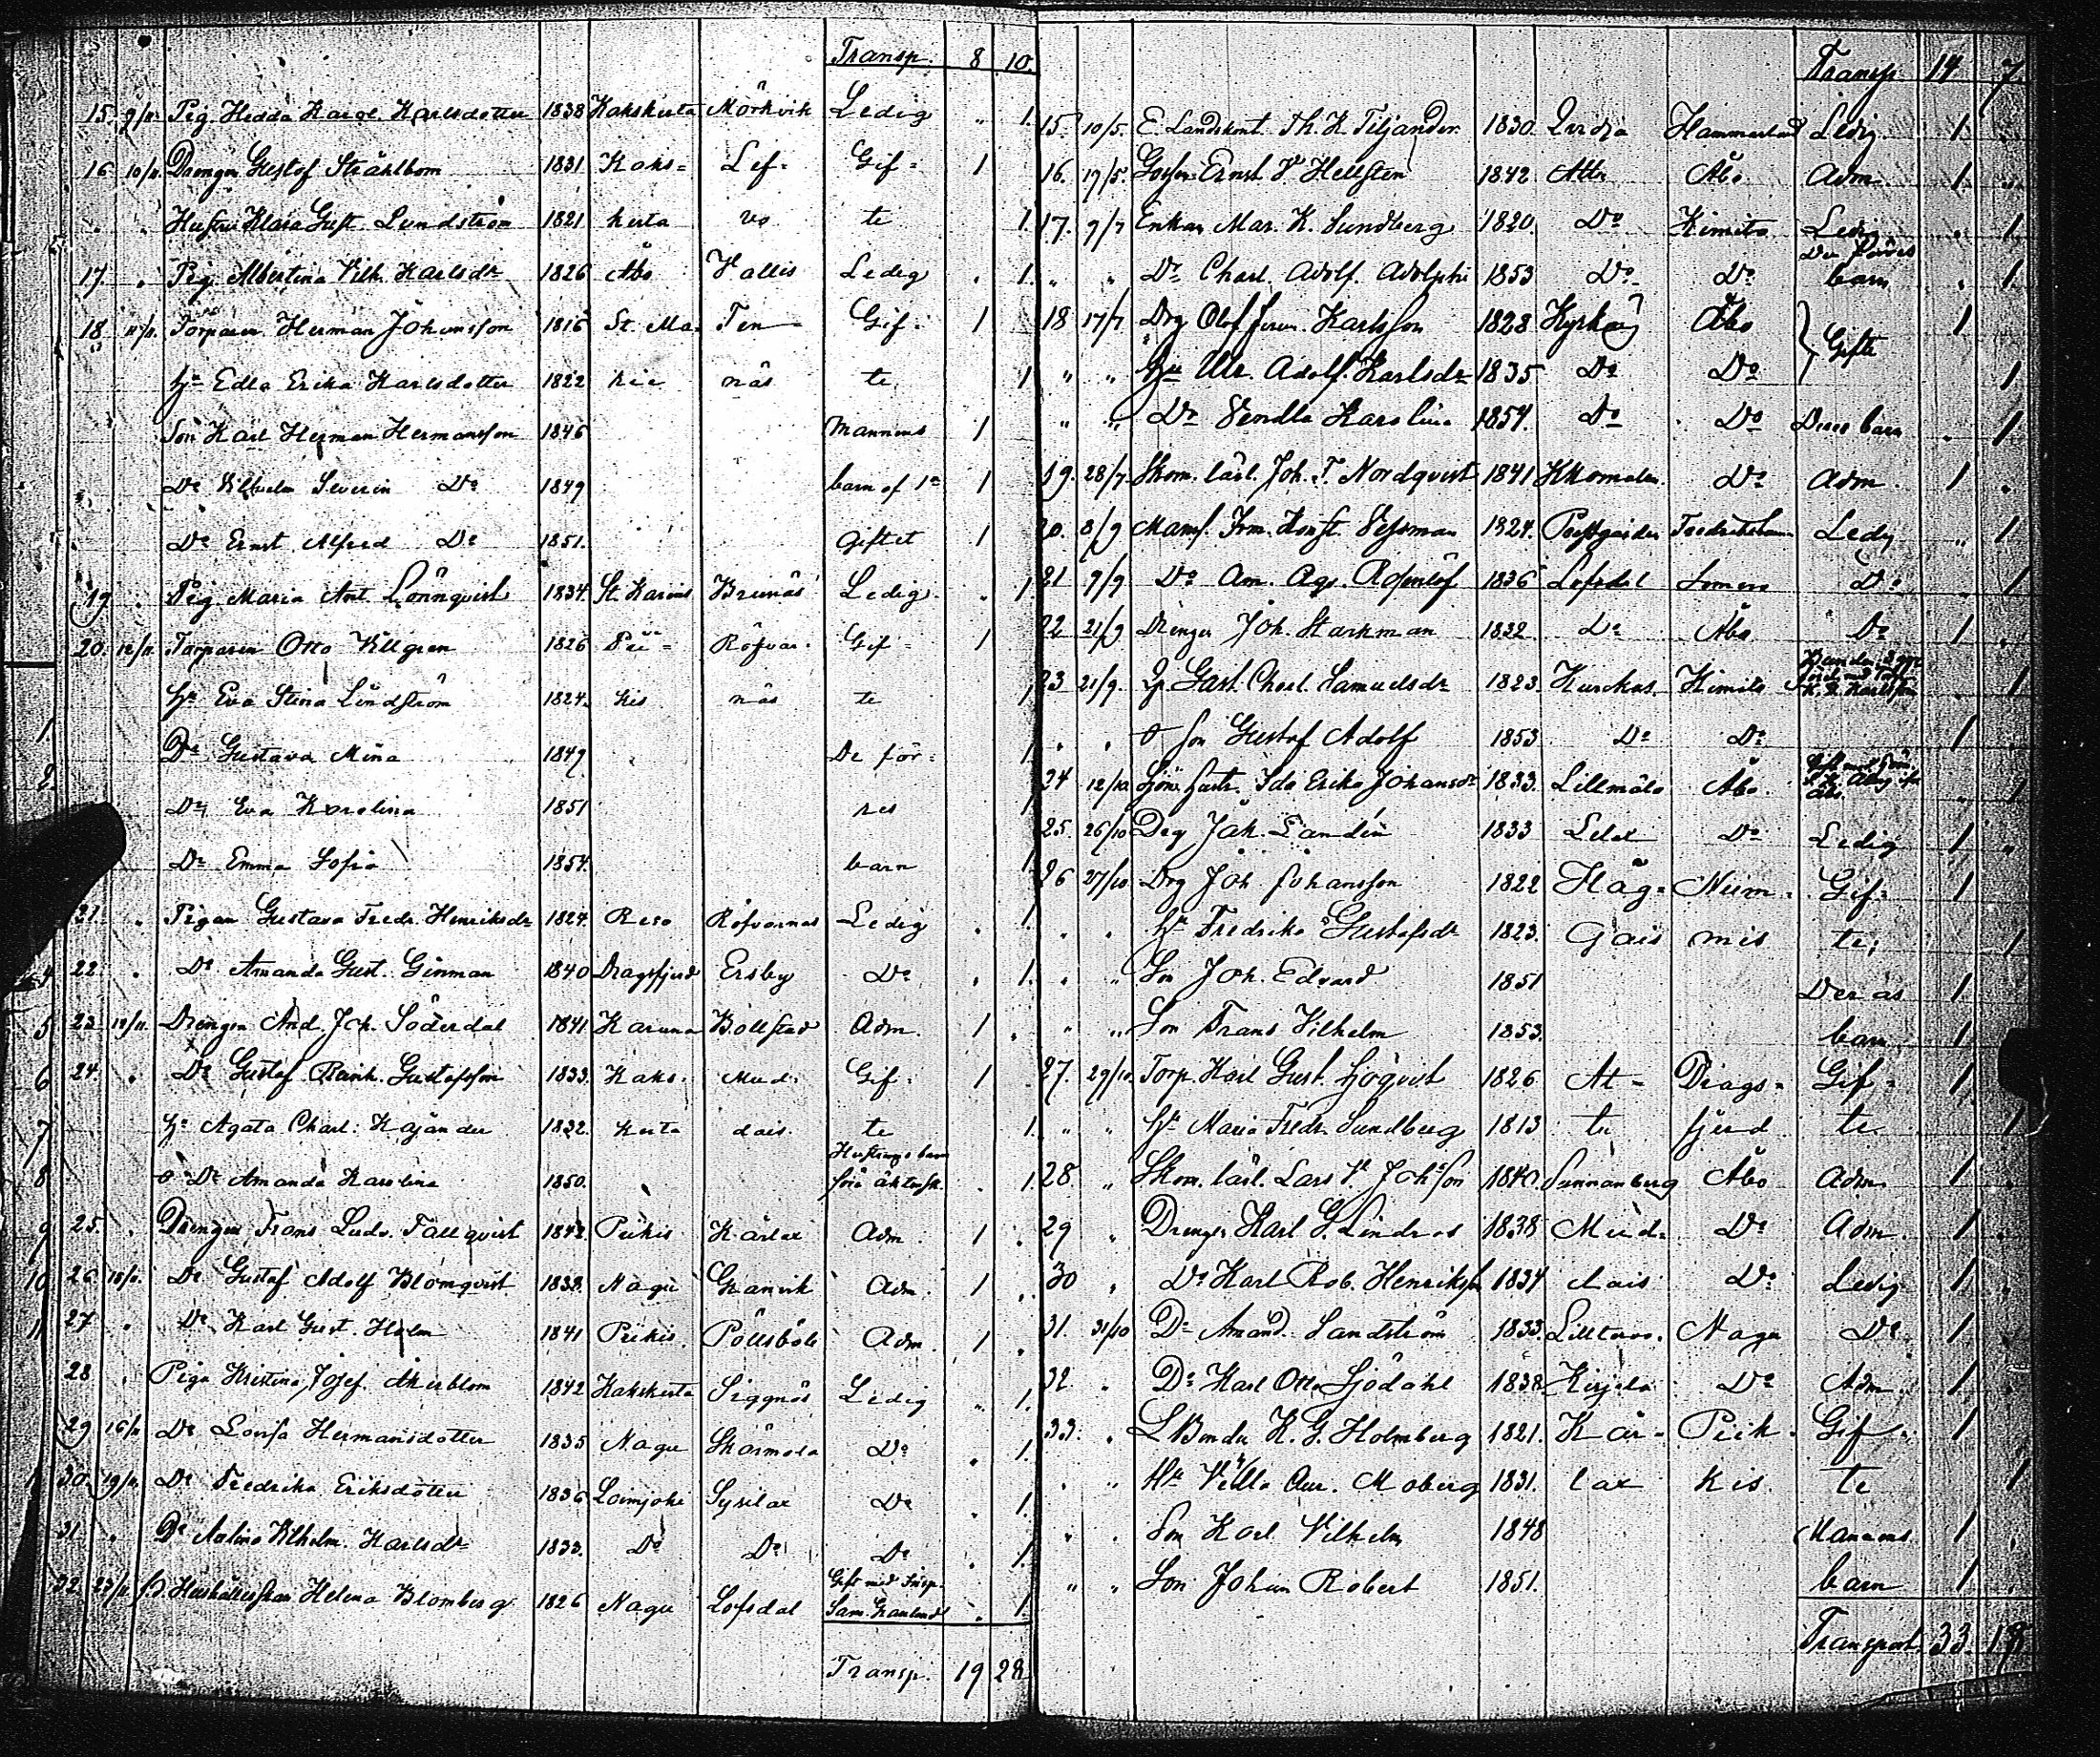 Transp. 8 10.
15. 9/11. Pig. Hedda Karol. Karlsdotter 1838 Kakskerta Mörkvik Ledig „ 1.
16 10/11. Drengen Gustof Stråhlbom 1831 Kaks= Lef= Gif= 1
„ „ Hustru Klara Gust. Lundström 1821 kerta vo te 1.
17. „ Pig. Albertina Vilh. Karlsdr 1826 Åbo Kallis Ledig . 1.
18 11/11. Torparen Herman Johansson 1816 St. Ma= Ten= Gif= 1
Hu Edla Erika Karlsdotter 1822 rie näs te 1
Son Karl Herman Hermansson 1846 Mannens 1
Do Vilhelm Severin Do 1849 barn af 1a 1
Do Ernst Alfred Do 1851. Giftet 1
19 „ Pig. Maria Ant. Lönnqvist 1834. St. Karins Krunäs Ledig . 1.
20. 12/11 Torparen Otto Killgren 1826 Pii= Röfvar= Gif= 1
Hu Eva Stina Lindström 1824. kis näs te 1
Dr Gustava Mina 1849 De för= 1
Dr Eva Karolina 1851 res 1
Dr Emma Sofia 1854. barn 1.
21. „ Pigan Gustava Fredr. Henriksdr 1824. Reso Röfvarnäs Ledig . 1.
22. „ Do Amanda Gust. Ginman 1840 Dragsfjerd Ersby Do . 1.
23 Drengen And. Joh. Söderdal 1841 Karuna Bollstad Adm. 1 .
24. „ Do Gustaf Reinh. Gustafsson 1833. Kaks= Mud= Gif= 1
Hu Agata Charl. Kajander 1832. kerta dais te 1.
o Dr Amanda Karolina 1850. Hustruns barn före äktensk. . 1.
25. „ Drengen Frans Ludv. Tallqvist 1842 Piikis Kärlax Adm. 1 .
26 15/11. Do Gustaf Adolf Blomqvist 1838. Nagu Granvik Adm. 1 .
27. „ Do Karl Gust. Holm 1841 Piikis Pöllsböle Adm. 1 .
28 „ Piga Kristina Josef. Åkerblom 1842 Kakskerta Siggnäs Ledig „ 1.
29 16/11 Do Lovisa Hermansdotter 1835 Nagu Skärmola Do . 1.
30. 19/11. Do Fredrika Eriksdotter 1836 Loimjoki Sysilax Do . 1.
31 „ Do Malina Vilhelm. Karlsdr 1833. Do Do Do . 1.
32 23/11 Hushållerskan Helena Blomberg 1826 Nagu Lofsdal Gift med Insp. Sam. Granlund . 1.
Transp. 19 28

Transp. 14 7
15. 10/5. E. Landskont. Th. K. Tiljander 1830. Qvidja Hammarland Ledig 1 „
16. 19/5. Gossen Ernst V. Hellsten 1842 Attu Åbo Adm. 1 „
17. 9/7 Enkan Mar. K. Sundberg 1820 Do Kimito Ledig . 1.
„ „ Dr Charl. Adolf. Adolphi 1853 Do Do barn . 1.
18 17/7 Drg Olof Karlsson 1828 Åbo Gifte 1
„ „ Hu Ulr. Adolf. Karlsdr 1835 Do Do 1
„ „ Dr Vendla Karolina 1854. Do Do Deras barn . 1
19. 28/7. Skom. lärl. Joh. F. Nordqvist 1841 Do Adm. 1 .
20. 8/9 Mams. Konst. Vesman 1824. Prestgården Fredrikshamn Ledig „ 1
21 9/9 Do Am. Aug. Rosenlöf 1836 Lofsdal Somero Do . 1
22 21/9 Drengen Joh. Starkman 1832 Do Åbo Do 1 .
23 21/9. Charl. Samuelsdr 1823. Kurckas Kimito . 1
„ „ o Son Gustaf Adolf 1853 Do Do 1
24 12/10 Ida Erika Johansdr 1833. Lillmälö Åbo „ 1
25. 26/10 Drg Joh. Landén 1833 Lelax Do Ledig 1 „
26 27/10. Drg Joh. Johansson 1822 Häg= Num= Gif= 1
„ „ Hu Fredrika Gustafsdr 1823. gais mis te 1
„ „ Son Joh. Edvard 1851 Deras 1
„ „ Son Frans Vilhelm 1853. barn 1
27. 29/10. Torp. Karl Gust. Sjöqvist 1826 At= Drags= Gif= 1
„ „ Hu Maria Fredr. Sundberg 1813 tu fjerd te 1
28 „ Skom. lärl. Lars V. Johsson 1840. Sunnanberg Åbo Adm. 1 .
29 „ Drengen Karl G. Lindros 1838 Mud= Do Adm. 1 .
30 „ Do Karl Rob. Henriksson 1834 dais Do Ledig 1 .
31. 31/10 Do Amand. Sandström 1833. Nagu Do 1 .
32. „ Do Karl Otto Sjödahl 1838 Kirjala Do Adm. 1 .
33. „ L. Bonden K. G. Holmberg 1821. Kär= Piik= Gif= 1
„ „ Hu Villa Aur. Moberg 1831. lax kis te 1
„ „ Son Karl Vilhelm 1848 Mannens 1
„ „ Son Johan Robert 1851. barn 1
Transport 33 18